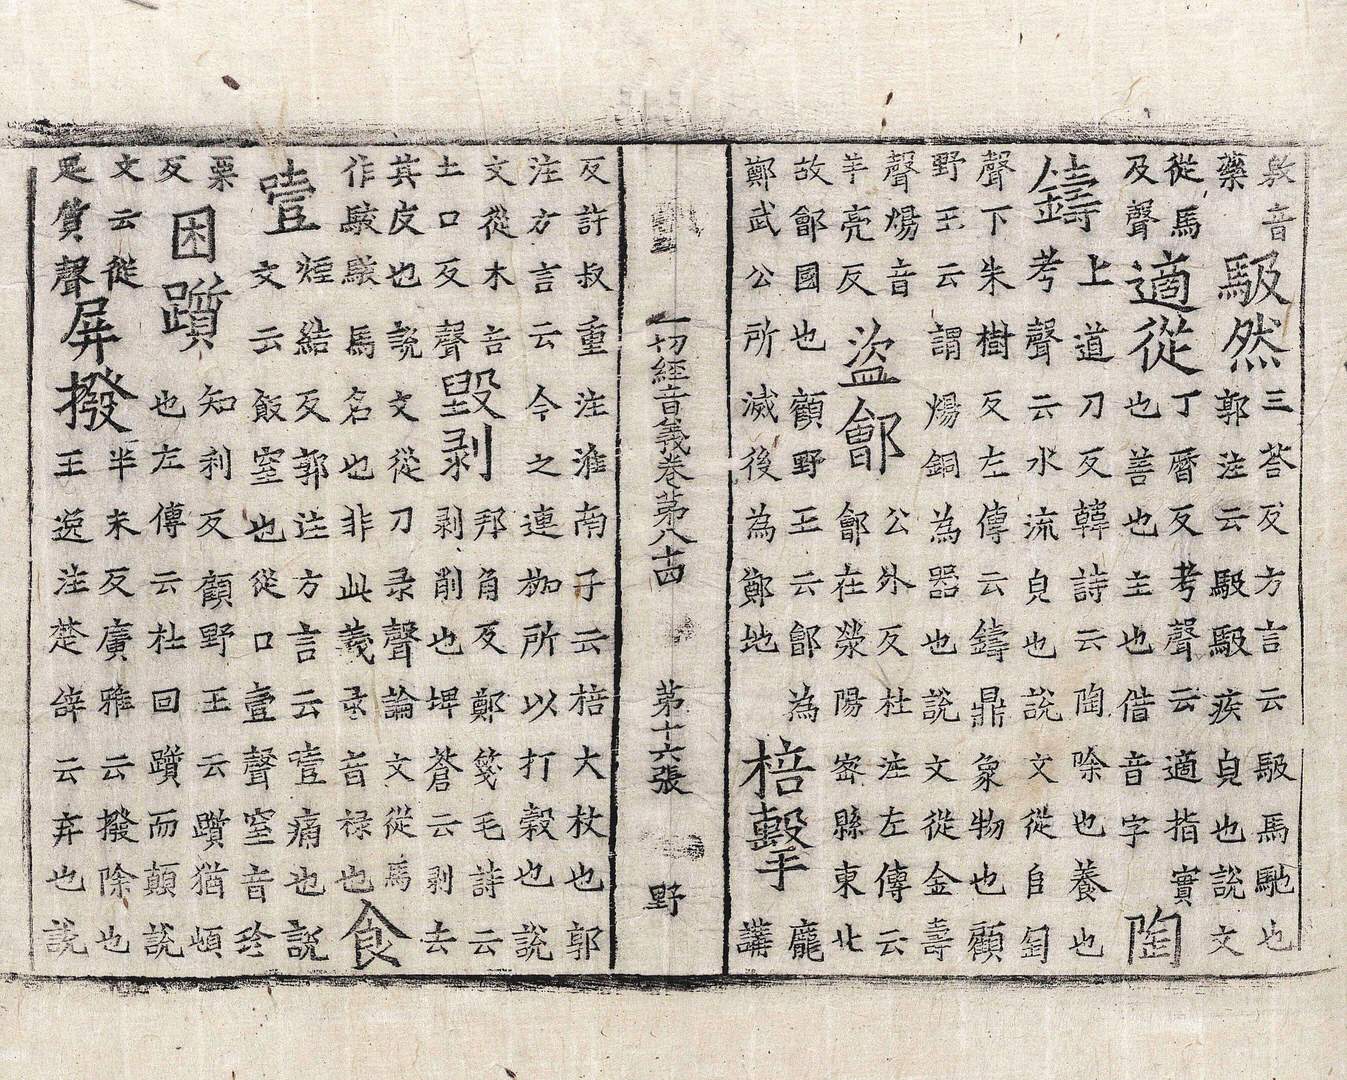 敫音
藥
馺然
三荅反方言云馺馬馳也
郭注云馺馺疾皃也說文
從馬
及聲
適從
丁曆反考聲云適指實
也善也主也借音字
陶
鑄
上道刀反韓詩云陶除也養也
考聲云水流皃也說文從𠂤匋
聲下朱樹反左傳云鑄鼎象物也顧
野王云謂煬銅為器也說文從金壽
聲煬音
羊亮反
盜鄶
公外反杜注左傳云
鄶在滎陽密縣東北
故鄶國也顧野王云鄶為
鄭武公所滅後為鄭地
棓擊
龐
講
一切經音義卷第八十四 第十六張 野
反許叔重注淮南子云棓大杖也郭
注方言云今之連枷所以打穀也說
文從木咅
土口反聲
毀剥
邦角反鄭箋毛詩云
剥削也埤蒼云剥去
其皮也說文從刀录聲論文從馬
作駮駮馬名也非此義录音禄也
食
噎
煙結反郭注方言云噎痛也說
文云飯窒也從口壹聲窒音珍
栗
反
困躓
知利反顧野王云躓猶頓
也左傳云杜回躓而顛說
文云從
足質聲
屏撥
半末反廣雅云撥除也
王逸注楚辭云弃也說